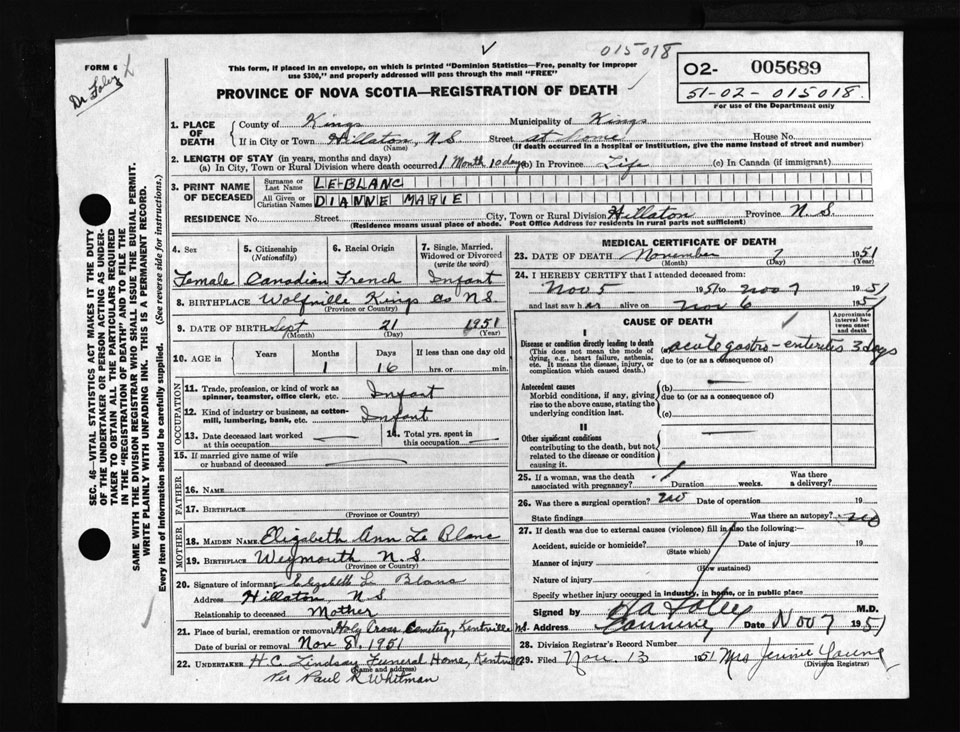 015018
FORM 6
Dr Foley
This form, if placed in an envelope, on which is printed "Dominion Statistics—Free, penalty for improper
use $300," and properly addressed will pass through the mail "FREE"
PROVINCE OF NOVA SCOTIA—REGISTRATION OF DEATH
02- 005689
51-02-015018.
For use of the Department only
SEC. 46—VITAL STATISTICS ACT MAKES IT THE DUTY
OF THE UNDERTAKER OR PERSON ACTING AS UNDER-
TAKER TO OBTAIN ALL THE PARTICULARS REQUIRED
IN THE "REGISTRATION OF DEATH" AND TO FILE THE
SAME WITH THE DIVISION REGISTRAR WHO SHALL ISSUE THE BURIAL PERMIT.
WRITE PLAINLY WITH UNFADING INK. THIS IS A PERMANENT RECORD.
Every item of information should be carefully supplied. (See reverse side for instructions.)
1. PLACE OF DEATH County of Kings Municipality of Kings
If in City or Town Hillaton, N.S Street at home House No.
(Name) (If death occurred in a hospital or institution, give its name instead of street and number)
2. LENGTH OF STAY (in years, months and days)
(a) In City, Town or Rural Division where death occurred 1 Month 10 days (b) In Province Life (c) In Canada (if immigrant)
3. PRINT NAME OF DECEASED Surname or Last Name LE-BLANC
All Given or Christian Names DIANNE MARIE
RESIDENCE No. Street City, Town or Rural Division Hillaton Province N.S.
(Residence means usual place of abode. Post Office Address for residents in rural parts not sufficient)
4. Sex 5. Citizenship (Nationality) 6. Racial Origin 7. Single, Married, Widowed or Divorced (write the word)
Female Canadian French Infant
8. BIRTHPLACE Wolfville Kings Co N.S.
(Province or Country)
9. DATE OF BIRTH Sept 21 1951
(Month) (Day) (Year)
10. AGE in Years Months Days If less than one day old
1 16 hrs. or min.
OCCUPATION
11. Trade, profession, or kind of work as
spinner, teamster, office clerk, etc. Infant
12. Kind of industry or business, as cotton-
mill, lumbering, bank, etc. Infant
13. Date deceased last worked
at this occupation
14. Total yrs. spent in
this occupation
15. If married give name of wife
or husband of deceased
FATHER
16. NAME
17. BIRTHPLACE
(Province or Country)
MOTHER
18. MAIDEN NAME Elizabeth Ann Le Blanc
19. BIRTHPLACE Weymouth N.S.
(Province or Country)
20. Signature of informant Elizabeth Le Blanc
Address Hillaton, N S
Relationship to deceased Mother
21. Place of burial, cremation or removal Holy Cross Cemetery, Kentville
Date of burial or removal Nov 8, 1951
22. UNDERTAKER H.C. Lindsay Funeral Home, Kentville
(Name and address)
Per Paul R Whitman
MEDICAL CERTIFICATE OF DEATH
23. DATE OF DEATH November 7 1951
(Month) (Day) (Year)
24. I HEREBY CERTIFY that I attended deceased from
Nov 5 1951 to Nov 7 1951
and last saw her alive on Nov 6 1951
CAUSE OF DEATH
Approximate interval be-tween onset and death
I
Disease or condition directly leading to death
(This does not mean the mode of
dying, e.g., heart failure, asthenia,
etc. It means the disease, injury, or
complication which caused death.)
acute gastro-enteritis 3 days
due to (or as a consequence of)
Antecedent causes
Morbid conditions, if any, giving
rise to the above cause, stating the
underlying condition last.
(b)
due to (or as a consequence of)
(c)
II
Other significant conditions
contributing to the death, but not
related to the disease or condition
causing it.
25. If a woman, was the death
associated with pregnancy? Duration weeks. Was there a delivery?
26. Was there a surgical operation? no Date of operation 19
State findings Was there an autopsy? no
27. If death was due to external causes (violence) fill in also the following:—
Accident, suicide or homicide? Date of injury 19
(State which)
Manner of injury
(How sustained)
Nature of injury
Specify whether injury occurred in industry, in home, or in public place
Signed by Foley M.D.
Address Canning Date Nov 7 1951
28. Division Registrar's Record Number
29. Filed Nov. 13 1951 Mrs Jennie Young
(Division Registrar)